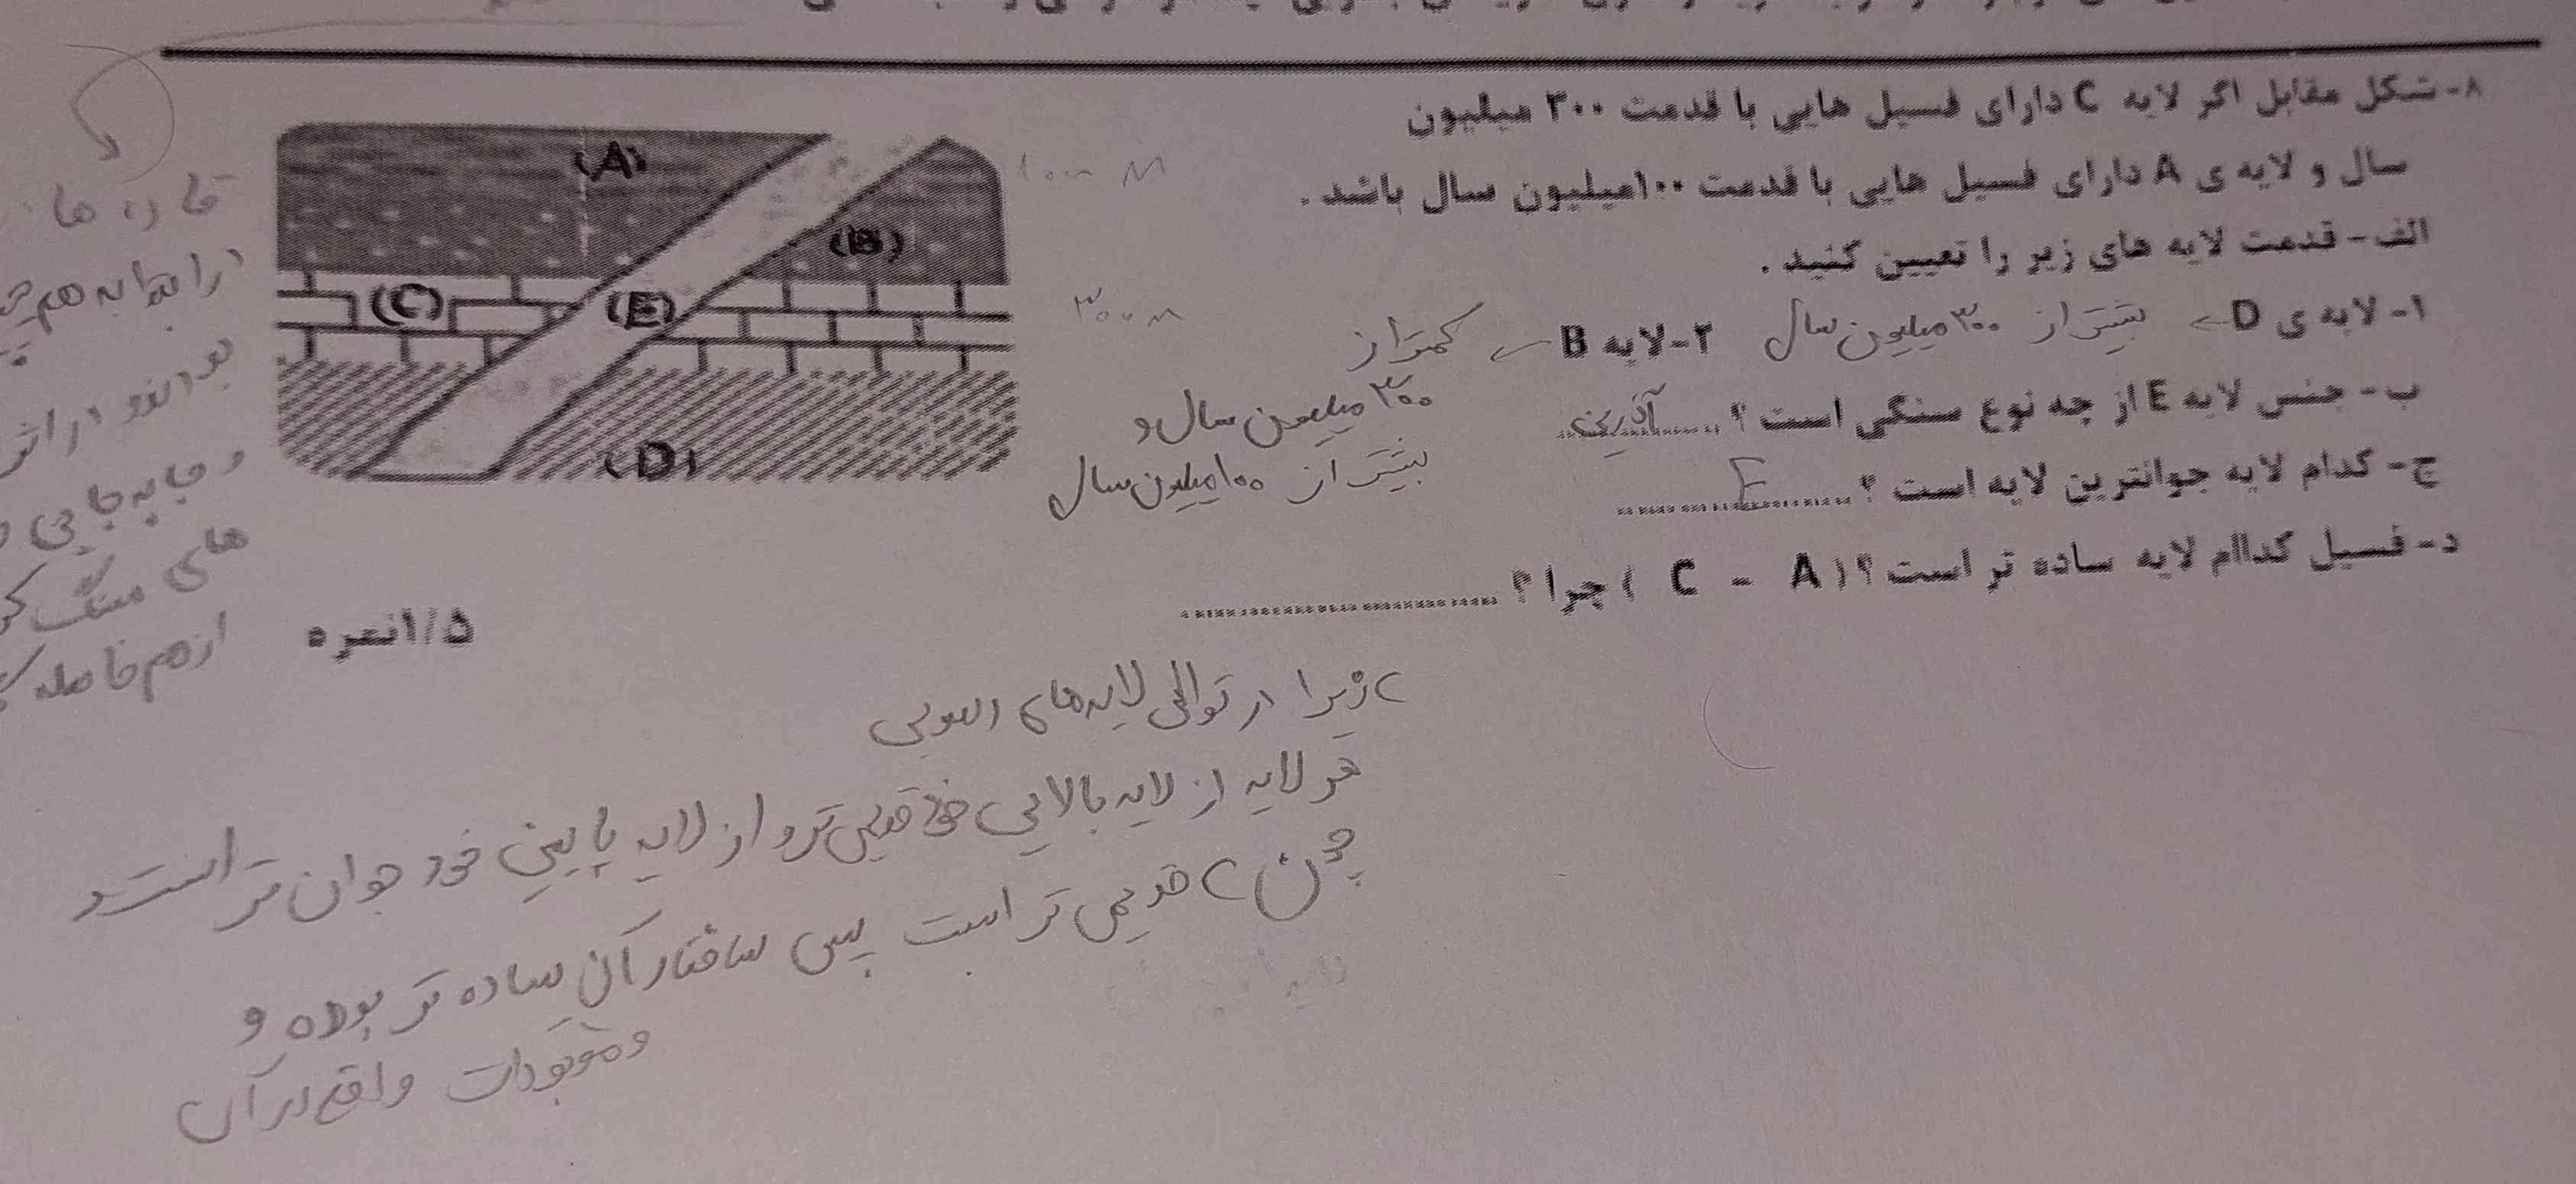 ۸- شکل مقابل اگر لایه C دارای فسیل هایی با قدمت ۳۰۰ میلیون
سال و لایه ی A دارای فسیل هایی با قدمت ۱۰۰میلیون سال باشد .
الف- قدمت لایه های زیر را تعیین کنید .
۱- لایه ی D ← بیشتر از ۳۰۰ میلیون سال ۲- لایه B ← کمتر از
۳۰۰ میلیون سال و
بیشتر از ۱۰۰ میلیون سال
ب- جنس لایه E از چه نوع سنگی است ؟ آذرین
ج- کدام لایه جوانترین لایه است ؟ E
د- فسیل کداام لایه ساده تر است ؟ ( C - A ) چرا ؟
۱/۵نمره
(A)
(B)
(C)
(E)
(D)
۱۰۰ m
۳۰۰ m
C زیرا در توالی لایه‌های رسوبی
هر لایه از لایه بالایی خود قدیمی تر و از لایه پایینی خود جوان تر است و
چون C قدیمی تر است پس ساختار آن ساده تر بوده و
موجودات واقع در آن
قاره ها
در ابتدا به هم
بودند در اثر
و جابه جایی
های سنگ
از هم فاصله